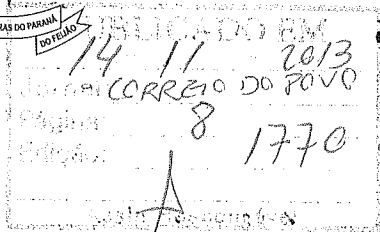 RAS DO PARANÁ
DO FEIJÃO
PUBLICADO EM
14 11 2013
Jornal CORREIO DO POVO
Página: 8
Edição: 1770